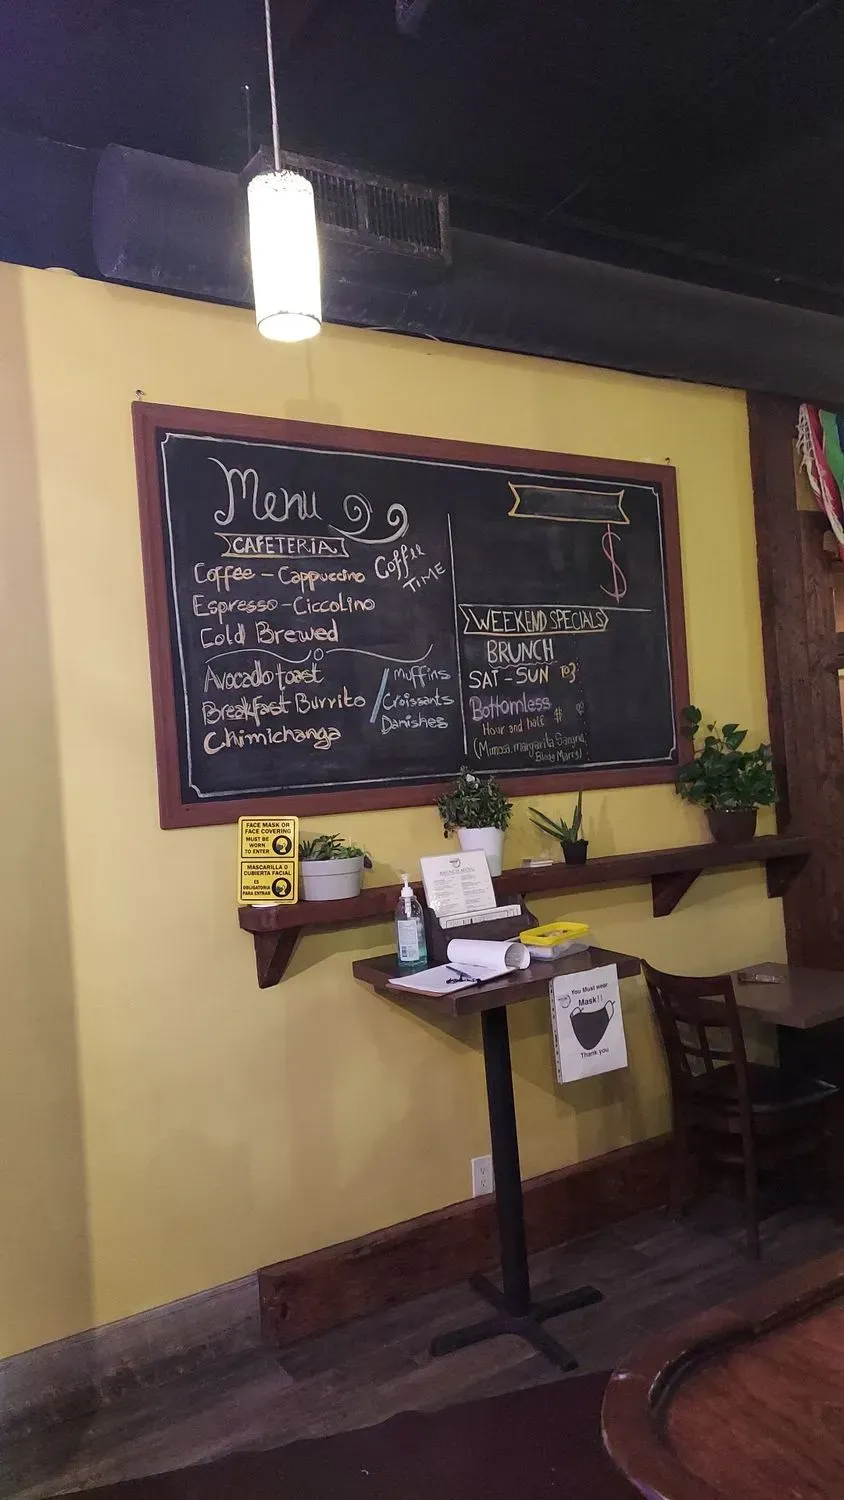 Menu
CAFETERIA
Coffee TIME
Coffee - Cappuccino
Espresso - Ciccolino
Cold Brewed
Avocado toast
Breakfast Burrito
Chimichanga
Muffins
Croissants
Danishes
$
WEEKEND SPECIALS
BRUNCH
SAT - SUN TO 3
Bottomless
Hour and half $
(Mimosa, margarita Sangria,
Blody Marry)
FACE MASK OR
FACE COVERING
MUST BE
WORN
TO ENTER
MASCARILLA O
CUBIERTA FACIAL
ES
OBLIGATORIA
PARA ENTRAR
BRUNCH MENU
You Must wear
Mask!!
Thank you